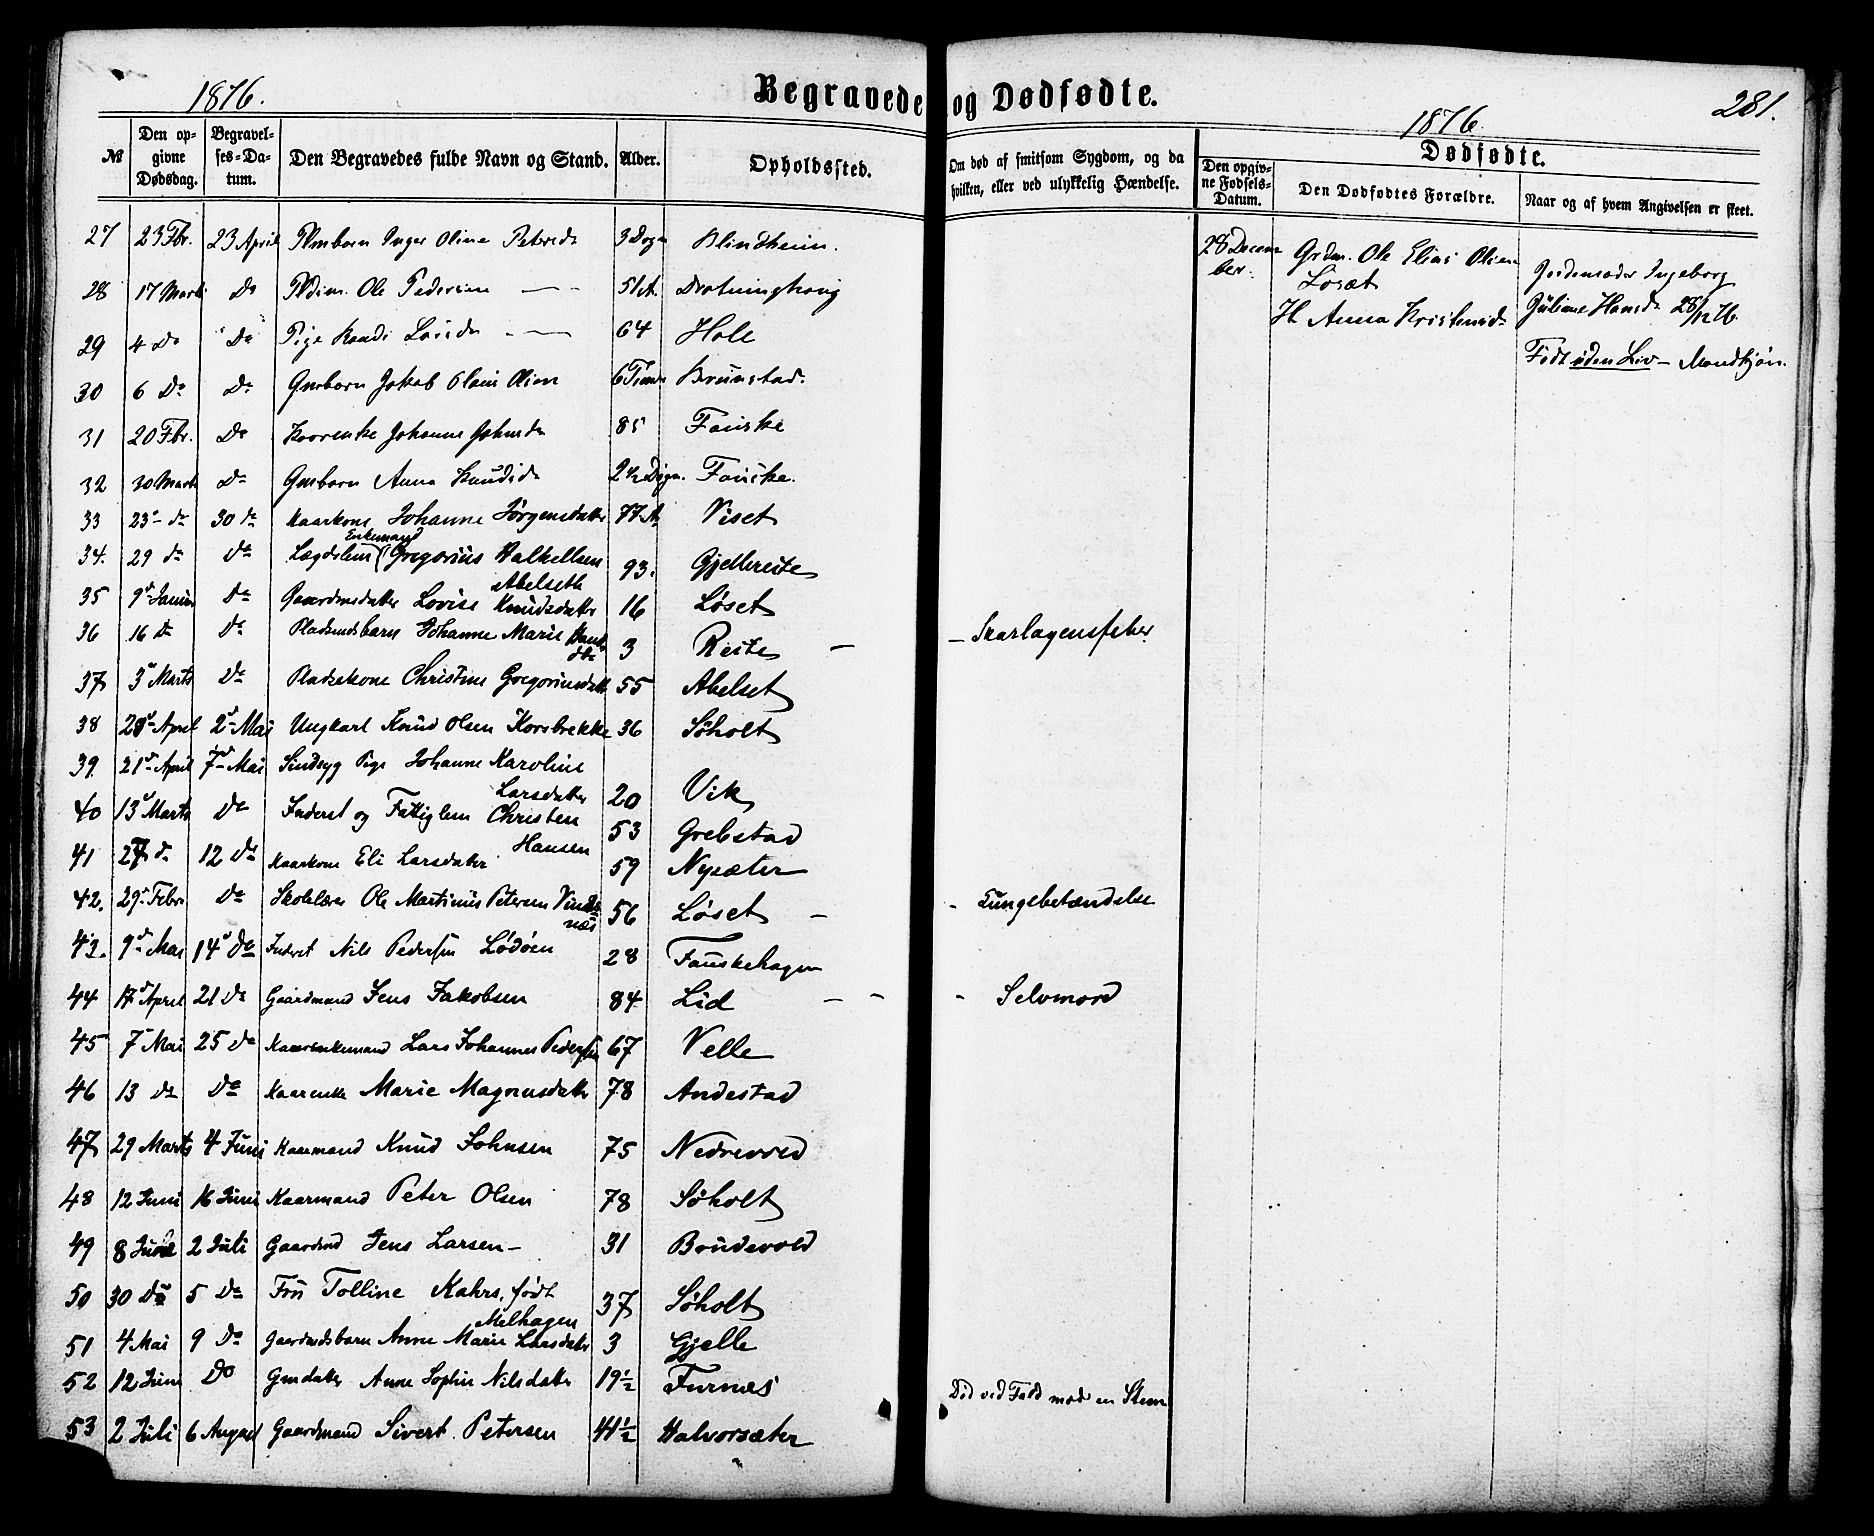 1876.
Begravede og Dødfødte.
1876
281.
№
Den opgivne Dødsdag.
Begravelses-Datum.
Den Begravedes fulde Navn og Stand.
Alder.
Opholdssted.
Om død af smitsom Sygdom, og da hvilken, eller ved ulykkelig Hændelse.
Dødfødte.
Den opgivne Fødsels-Datum.
Den Dødfødtes Forældre.
Naar og af hvem Angivelsen er skeet.
27 23 Fbr. 23 April Inger Oline Petersd 3 Døgn Blindheim.
28 17 Marts Do Ole Pedersen 51 A.
29 4 Do Do Pige 64 Hole
30 6 Do Do Gmbarn Jakob Olsen 6 Timer Brunstad.
31 20 Fbr. Do Kaarenke Johanne Johnsd 85 Fauske
32 30 Marts Do Gmbarn Anna Knudsd 2½ Døgn. Fauske.
33 23 do 30 do Kaarkone Johanne Jørgensdatter 77 A Viset
Enkemand
34. 29 do do Lægdslem (Gregorius 93. Gjellereite
Abelseth
35 9d Januar do Gaardmsdatter Lovise Knudsdatter 16 Løset
36 16 D Do Pladsmdsbarn Johanne Marie 3 Reite – – Skarlagensfeber
37 3d Marts Do Pladsekone Christine Gregoriusdatt 55 Abelset
38 28d April 2d Mai Ungkarl Knud Olsen Korsbrekke 36 Søholt
39. 21d April 7d Mai Sindsyg Pige Johanne Karoline
Larsdatter 20 Vik
40 13d Marts Do Inderst og Fattiglem Christen
Hansen 53 Grebstad
41 27 do 12 Do Kaarkone Eli Larsdatter 59 Nysæter
42. 29 Febr Do Skolelærer Ole Martinus Petersen
næs 56 Løset – – Lungebetændelse
43. 9d Mai 14d Do Inderst Nils Pedersen Lødøen 28 Fauskehagen
44 17d April 21 Do Gaardmand Jens Jakobsen 84 Lid – – – Selvmord
45 7 Mai 25 Do Kaarenkemand Lars Johannes Pedersen 67 Velle
46 13 do Do Kaarenke Marie Magnusdatter 78 Andestad
47 29 Marts 4 Juni Kaarmand Knud Johnsen 75 Nedrevold
48 12 Juni 16 Juni Kaarmand Peter Olsen 78 Søholt
49 8 Juni 2 Juli Gaardmd Jens Larsen – 31 Brudevold
50 30 Do 5 Do Fru Tolline Kahrs, født
Melhagen 37 Søholt
51 4 Mai 9 Do Gaardmdsbarn Anne Marie Larsdatter 3 Gjelle
52 12 Juni Do Gmdatter Anne Sophie Nilsdatter 19½ Furnes Død ved Fald mod en Steen
53 2 Juli 6 August Gaardmand Sivert Petersen 44½ Halvorsæter
28 December. Grdm. Ole Elias Olsen
Løsæt
H. Anna
Jordemoder Ingeborg
Juliane Hansd 28/12 76.
Født uden Liv – Mandkjøn.